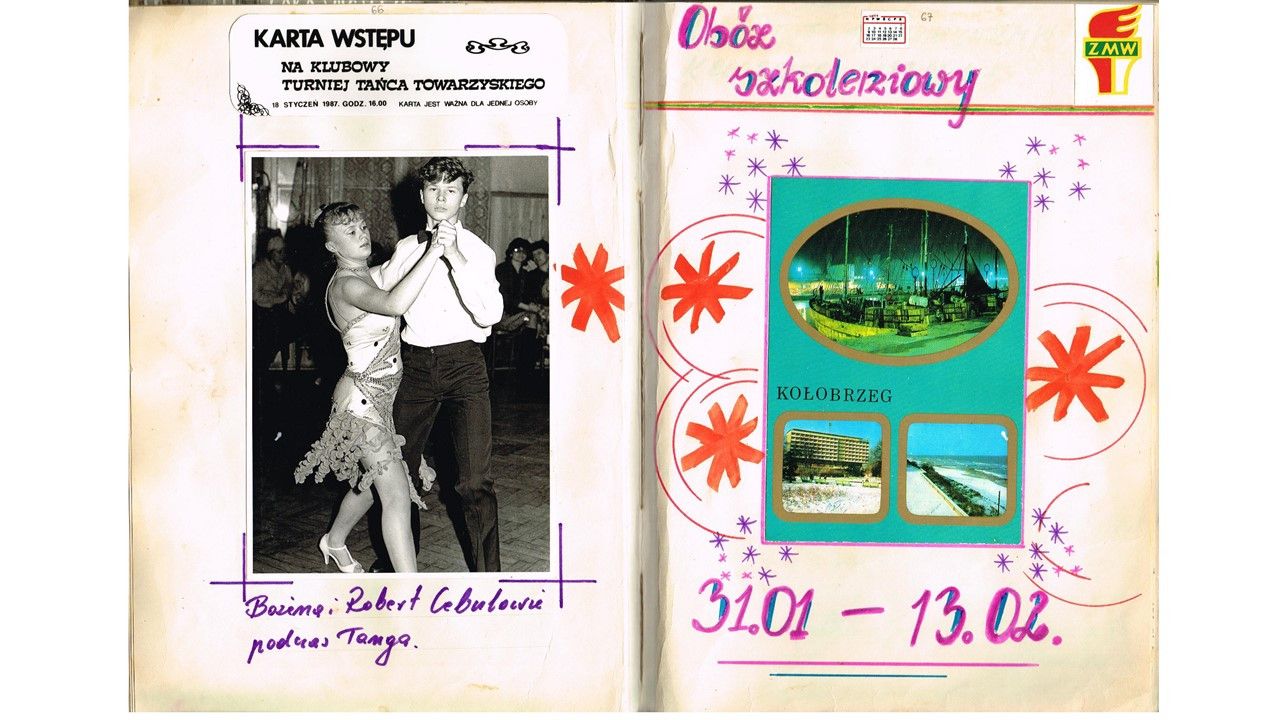 66
KARTA WSTĘPU
NA KLUBOWY
TURNIEJ TAŃCA TOWARZYSKIEGO
18 STYCZEŃ 1987. GODZ. 16.00 KARTA JEST WAŻNA DLA JEDNEJ OSOBY
Bożena i Robert Cebulowie
podczas Tanga.
67
Obóz
szkoleniowy
ZMW
KOŁOBRZEG
31.01 – 13.02.